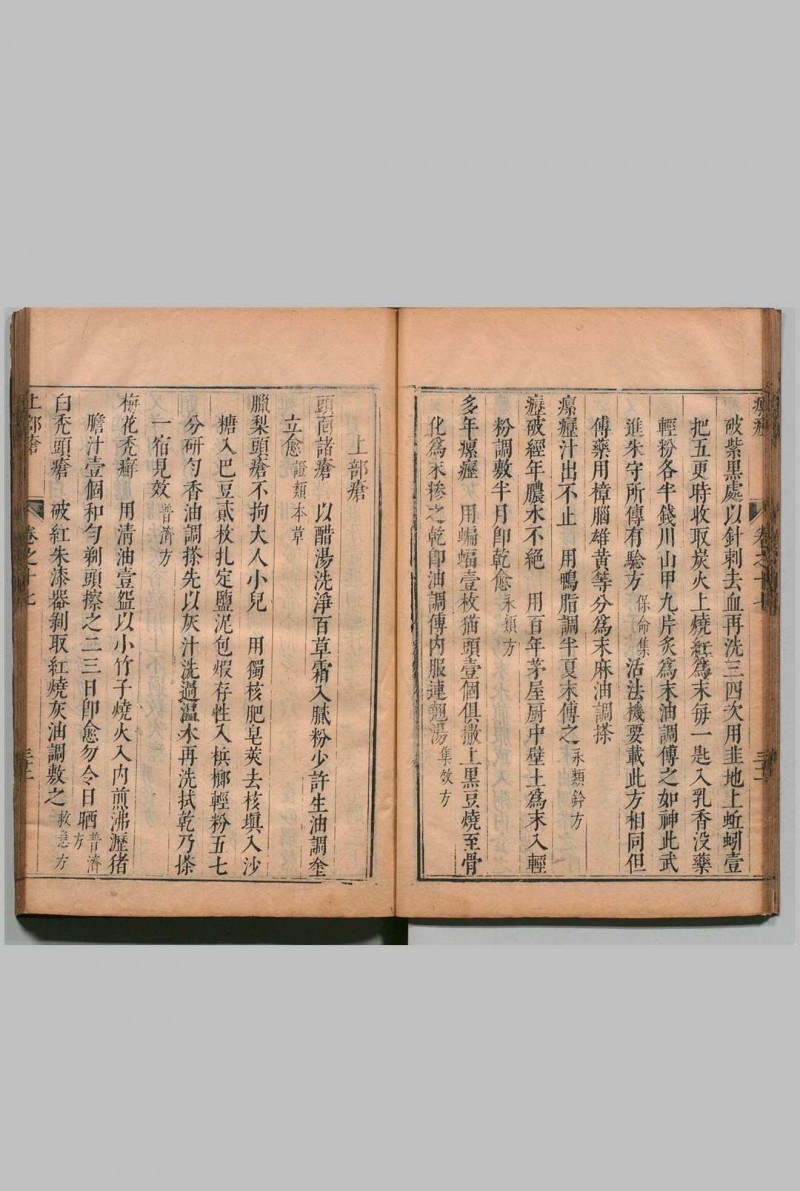 破紫黑處以針刺去血再洗三四次用韭地上蚯蚓壹
把五更時收取炭火上燒紅爲末每一匙入乳香沒藥
輕粉各半錢川山甲九片炙爲末油調傅之如神此武
進朱守所傳有驗方保命集活法機要載此方相同但
傅藥用樟腦雄黃等分爲末麻油調搽
瘰癧汁出不止 用鴨脂調半夏末傅之永類鈐方
癧破經年膿水不絕 用百年茅屋厨中壁土爲末入輕
粉調敷半月卽乾愈永類方
多年瘰癧 用蝙蝠壹枚猫頭壹個俱撒上黑豆燒至骨
化爲末摻之乾卽油調傅內服連翹湯集效方
上部瘡
頭面諸瘡 以醋湯洗淨百草霜入膩粉少許生油調塗
立愈證類本草
臘梨頭瘡不拘大人小兒 用獨核肥皂莢去核塡入沙
糖入巴豆貳枚扎定鹽泥包煅存性入檳榔輕粉五七
分硏勻香油調搽先以灰汁洗過温水再洗拭乾乃搽
一宿見效普濟方
梅花禿癬 用清油壹盌以小竹子燒火入內煎沸瀝猪
膽汁壹個和勻剃頭擦之二三日卽愈勿令日晒普濟方
白禿頭瘡 破紅朱漆器剝取紅燒灰油調敷之救急方
上部瘡 卷之十七